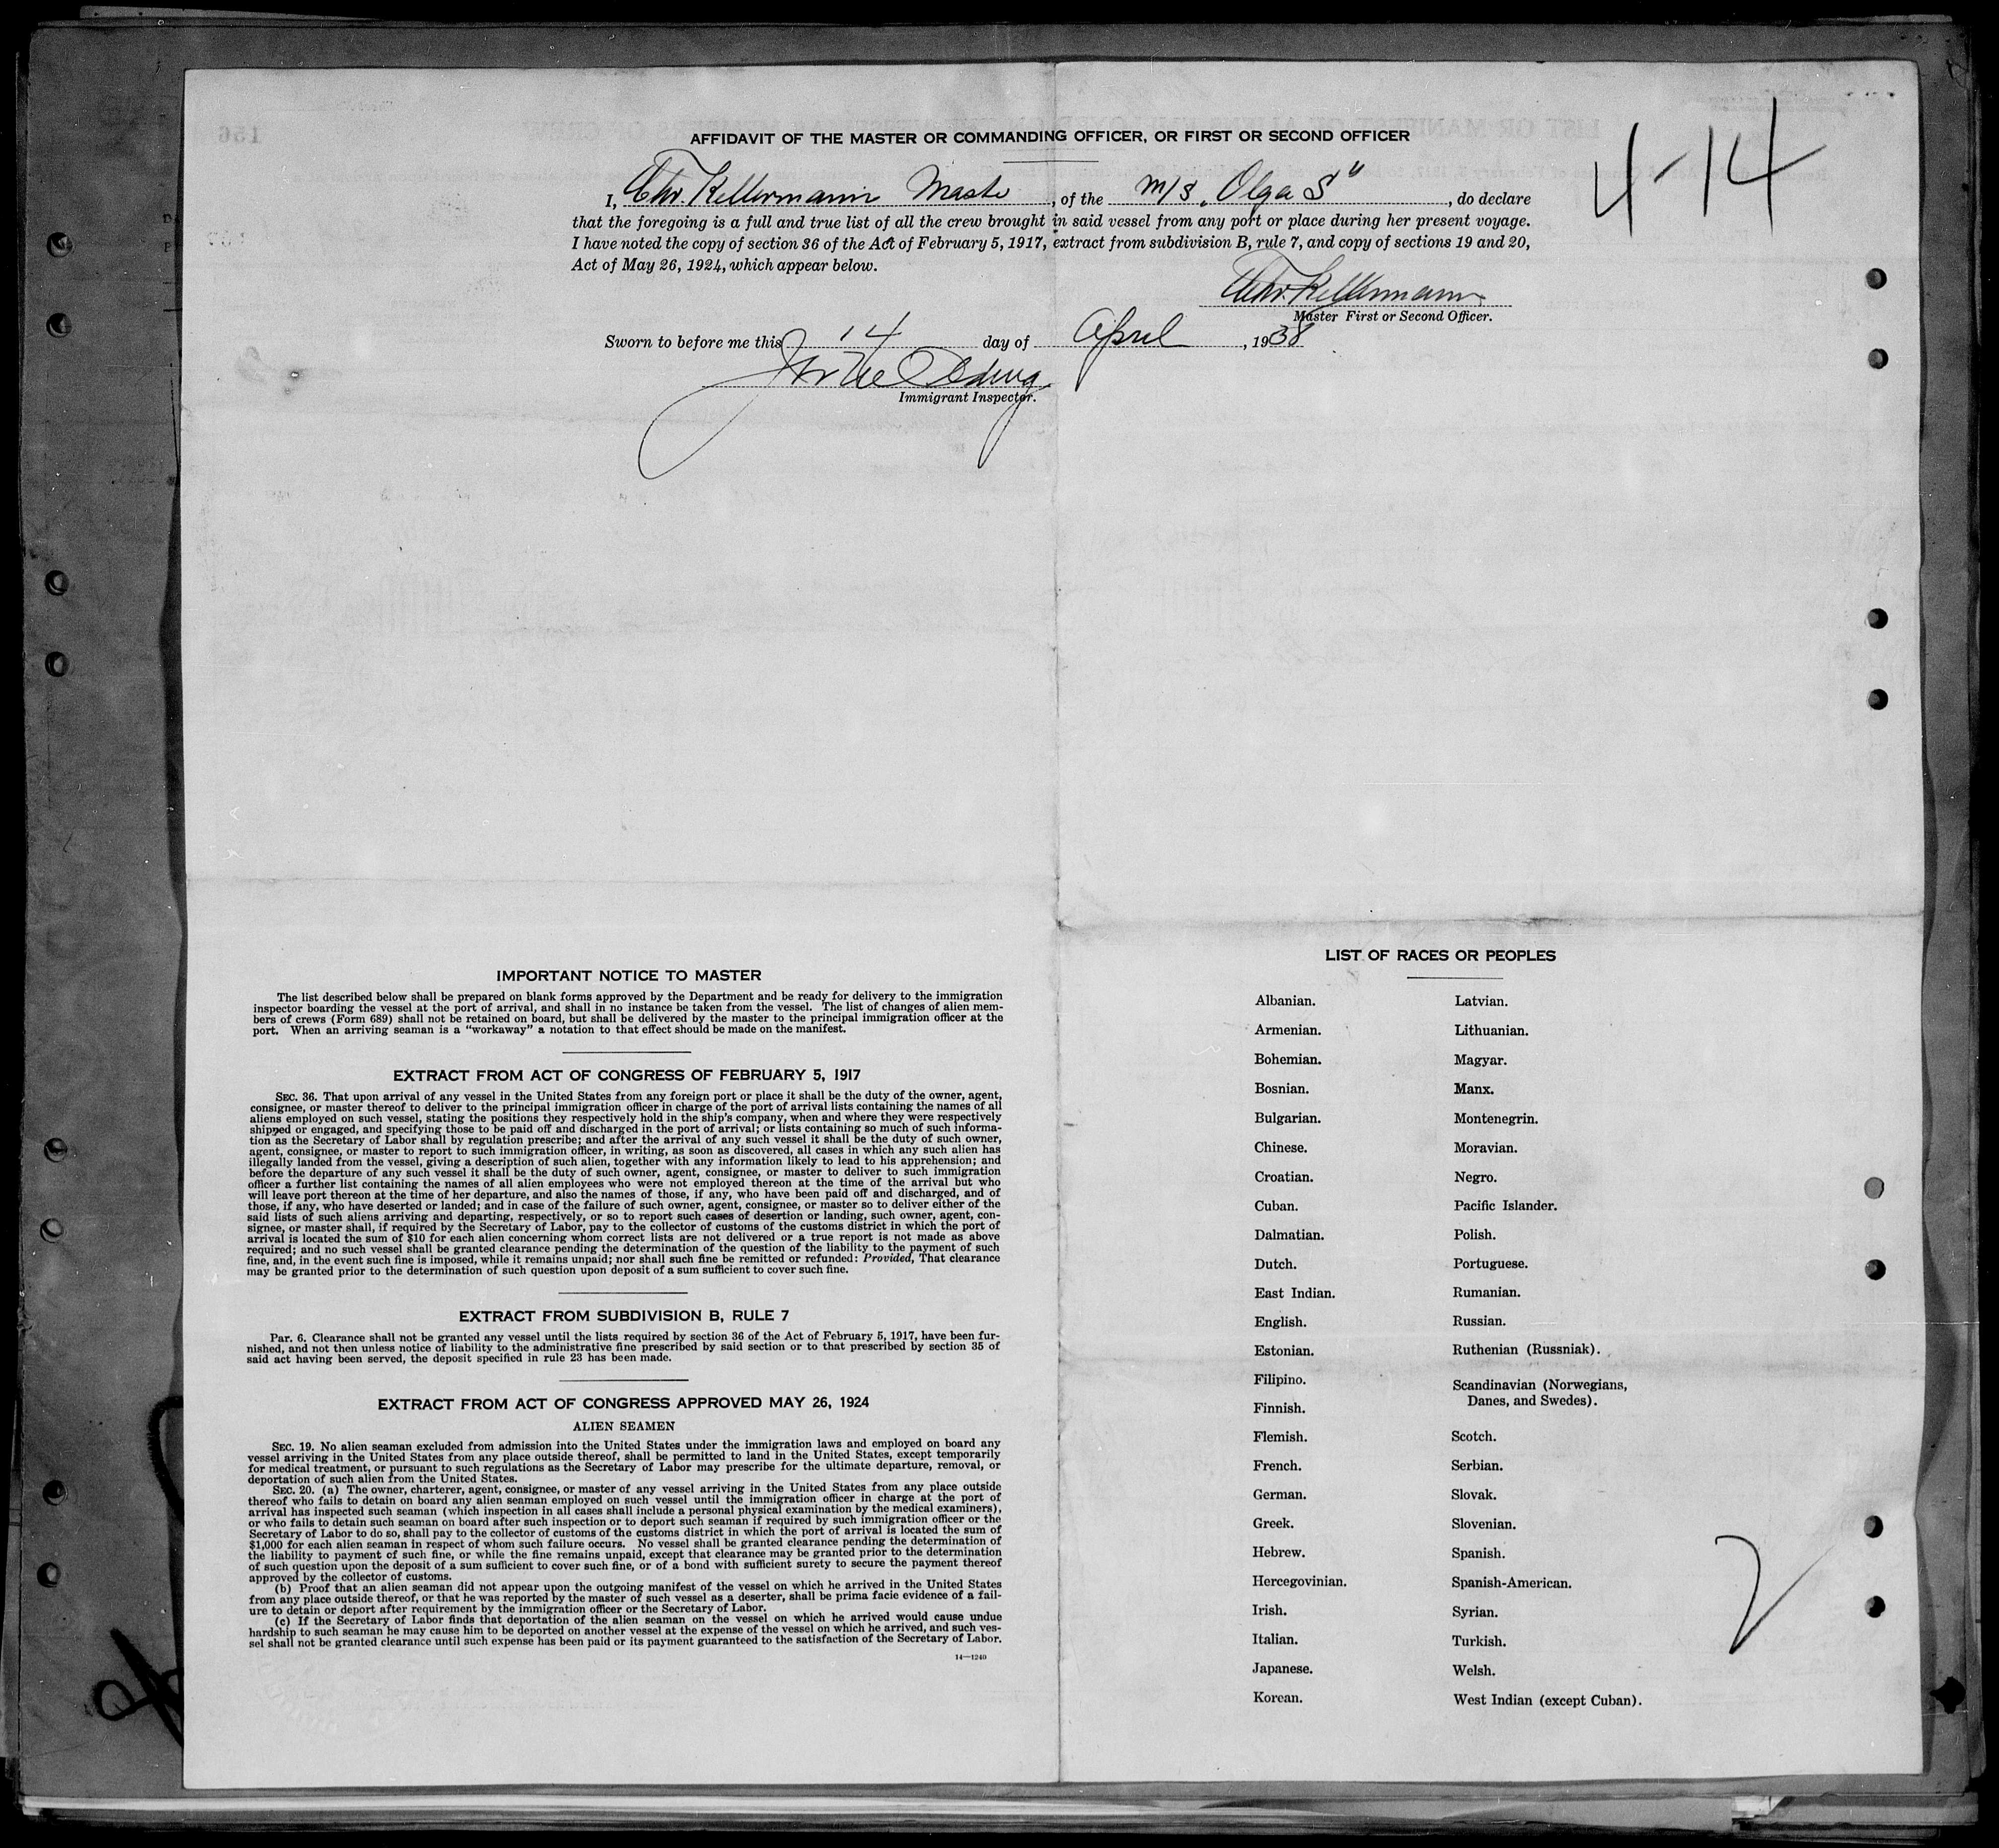 AFFIDAVIT OF THE MASTER OR COMMANDING OFFICER, OR FIRST OR SECOND OFFICER
4-14
I, Chr. Kellermann Master, of the M/S "Olga S", do declare
that the foregoing is a full and true list of all the crew brought in said vessel from any port or place during her present voyage.
I have noted the copy of section 36 of the Act of February 5, 1917, extract from subdivision B, rule 7, and copy of sections 19 and 20,
Act of May 26, 1924, which appear below.
Chr. Kellermann
Master First or Second Officer.
Sworn to before me this 14 day of April, 1938
Immigrant Inspector.
IMPORTANT NOTICE TO MASTER
The list described below shall be prepared on blank forms approved by the Department and be ready for delivery to the immigration
inspector boarding the vessel at the port of arrival, and shall in no instance be taken from the vessel. The list of changes of alien mem-
bers of crews (Form 689) shall not be retained on board, but shall be delivered by the master to the principal immigration officer at the
port. When an arriving seaman is a "workaway" a notation to that effect should be made on the manifest.
EXTRACT FROM ACT OF CONGRESS OF FEBRUARY 5, 1917
SEC. 36. That upon arrival of any vessel in the United States from any foreign port or place it shall be the duty of the owner, agent,
consignee, or master thereof to deliver to the principal immigration officer in charge of the port of arrival lists containing the names of all
aliens employed on such vessel, stating the positions they respectively hold in the ship's company, when and where they were respectively
shipped or engaged, and specifying those to be paid off and discharged in the port of arrival; or lists containing so much of such informa-
tion as the Secretary of Labor shall by regulation prescribe; and after the arrival of any such vessel it shall be the duty of such owner,
agent, consignee, or master to report to such immigration officer, in writing, as soon as discovered, all cases in which any such alien has
illegally landed from the vessel, giving a description of such alien, together with any information likely to lead to his apprehension; and
before the departure of any such vessel it shall be the duty of such owner, agent, consignee, or master to deliver to such immigration
officer a further list containing the names of all alien employees who were not employed thereon at the time of the arrival but who
will leave port thereon at the time of her departure, and also the names of those, if any, who have been paid off and discharged, and of
those, if any, who have deserted or landed; and in case of the failure of such owner, agent, consignee, or master so to deliver either of the
said lists of such aliens arriving and departing, respectively, or so to report such cases of desertion or landing, such owner, agent, con-
signee, or master shall, if required by the Secretary of Labor, pay to the collector of customs of the customs district in which the port of
arrival is located the sum of $10 for each alien concerning whom correct lists are not delivered or a true report is not made as above
required; and no such vessel shall be granted clearance pending the determination of the question of the liability to the payment of such
fine, and, in the event such fine is imposed, while it remains unpaid; nor shall such fine be remitted or refunded: Provided, That clearance
may be granted prior to the determination of such question upon deposit of a sum sufficient to cover such fine.
EXTRACT FROM SUBDIVISION B, RULE 7
Par. 6. Clearance shall not be granted any vessel until the lists required by section 36 of the Act of February 5, 1917, have been fur-
nished, and not then unless notice of liability to the administrative fine prescribed by said section or to that prescribed by section 35 of
said act having been served, the deposit specified in rule 23 has been made.
EXTRACT FROM ACT OF CONGRESS APPROVED MAY 26, 1924
ALIEN SEAMEN
SEC. 19. No alien seaman excluded from admission into the United States under the immigration laws and employed on board any
vessel arriving in the United States from any place outside thereof, shall be permitted to land in the United States, except temporarily
for medical treatment, or pursuant to such regulations as the Secretary of Labor may prescribe for the ultimate departure, removal, or
deportation of such alien from the United States.
SEC. 20. (a) The owner, charterer, agent, consignee, or master of any vessel arriving in the United States from any place outside
thereof who fails to detain on board any alien seaman employed on such vessel until the immigration officer in charge at the port of
arrival has inspected such seaman (which inspection in all cases shall include a personal physical examination by the medical examiners),
or who fails to detain such seaman on board after such inspection or to deport such seaman if required by such immigration officer or the
Secretary of Labor to do so, shall pay to the collector of customs of the customs district in which the port of arrival is located the sum of
$1,000 for each alien seaman in respect of whom such failure occurs. No vessel shall be granted clearance pending the determination of
the liability to payment of such fine, or while the fine remains unpaid, except that clearance may be granted prior to the determination
of such question upon the deposit of a sum sufficient to cover such fine, or of a bond with sufficient surety to secure the payment thereof
approved by the collector of customs.
(b) Proof that an alien seaman did not appear upon the outgoing manifest of the vessel on which he arrived in the United States
from any place outside thereof, or that he was reported by the master of such vessel as a deserter, shall be prima facie evidence of a fail-
ure to detain or deport after requirement by the immigration officer or the Secretary of Labor.
(c) If the Secretary of Labor finds that deportation of the alien seaman on the vessel on which he arrived would cause undue
hardship to such seaman he may cause him to be deported on another vessel at the expense of the vessel on which he arrived, and such ves-
sel shall not be granted clearance until such expense has been paid or its payment guaranteed to the satisfaction of the Secretary of Labor.
14—1240
LIST OF RACES OR PEOPLES
Albanian.
Armenian.
Bohemian.
Bosnian.
Bulgarian.
Chinese.
Croatian.
Cuban.
Dalmatian.
Dutch.
East Indian.
English.
Estonian.
Filipino.
Finnish.
Flemish.
French.
German.
Greek.
Hebrew.
Hercegovinian.
Irish.
Italian.
Japanese.
Korean.
Latvian.
Lithuanian.
Magyar.
Manx.
Montenegrin.
Moravian.
Negro.
Pacific Islander.
Polish.
Portuguese.
Rumanian.
Russian.
Ruthenian (Russniak).
Scandinavian (Norwegians,
Danes, and Swedes).
Scotch.
Serbian.
Slovak.
Slovenian.
Spanish.
Spanish-American.
Syrian.
Turkish.
Welsh.
West Indian (except Cuban).
2